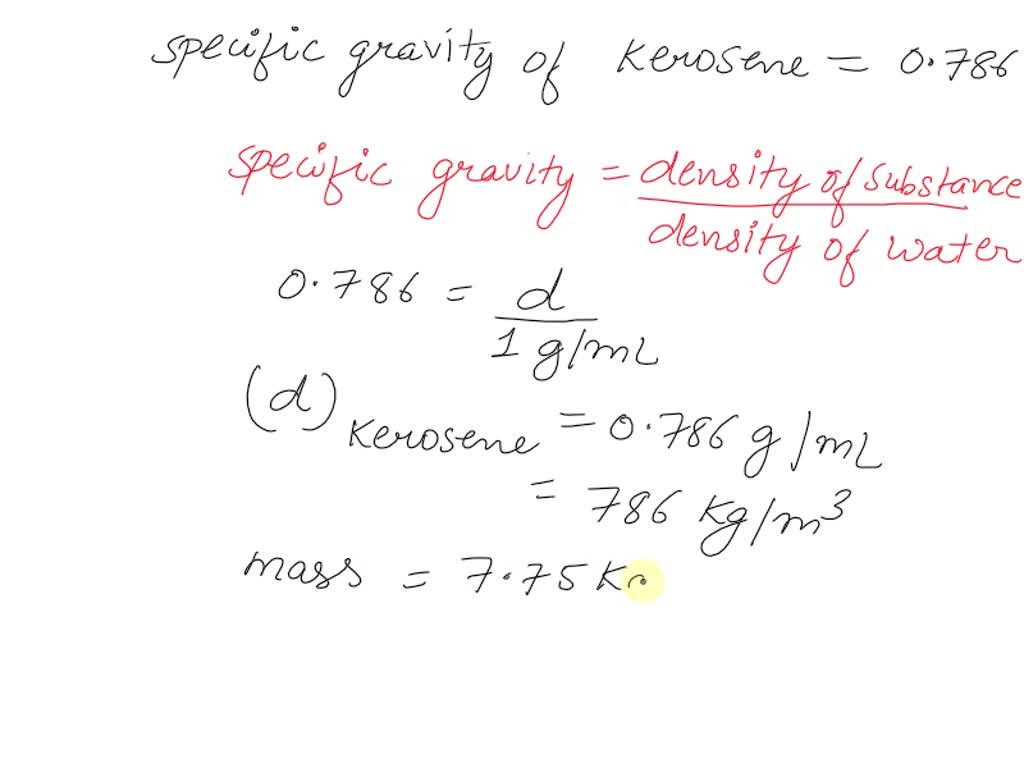 specific gravity of kerosene = 0.786
specific gravity = density of substance
density of water
0.786 = d
1 g/mL
(d) kerosene = 0.786 g/mL
= 786 kg/m³
mass = 7.75 K